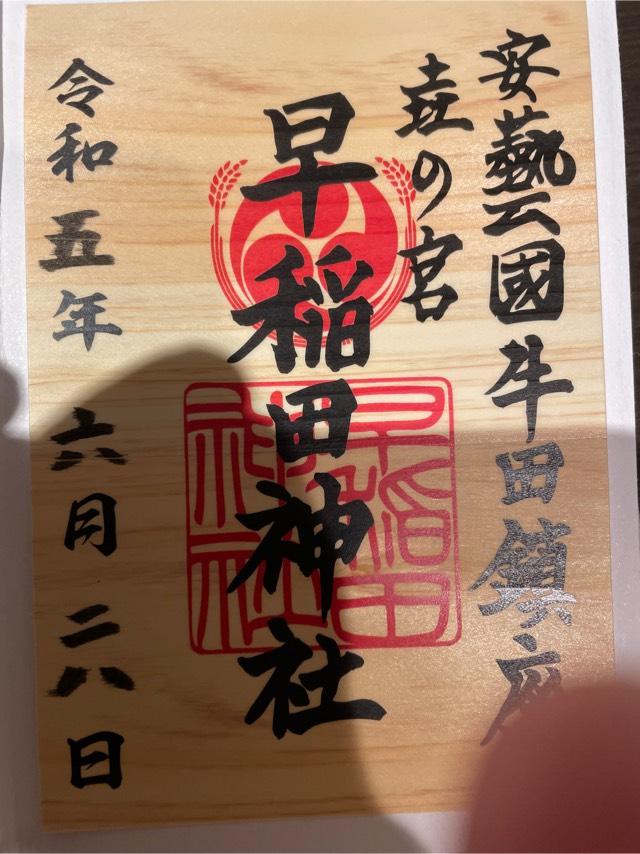 安藝國牛田鎮座
壺の宮
早稲田神社
令和五年 六月 二八日
早稲田神社